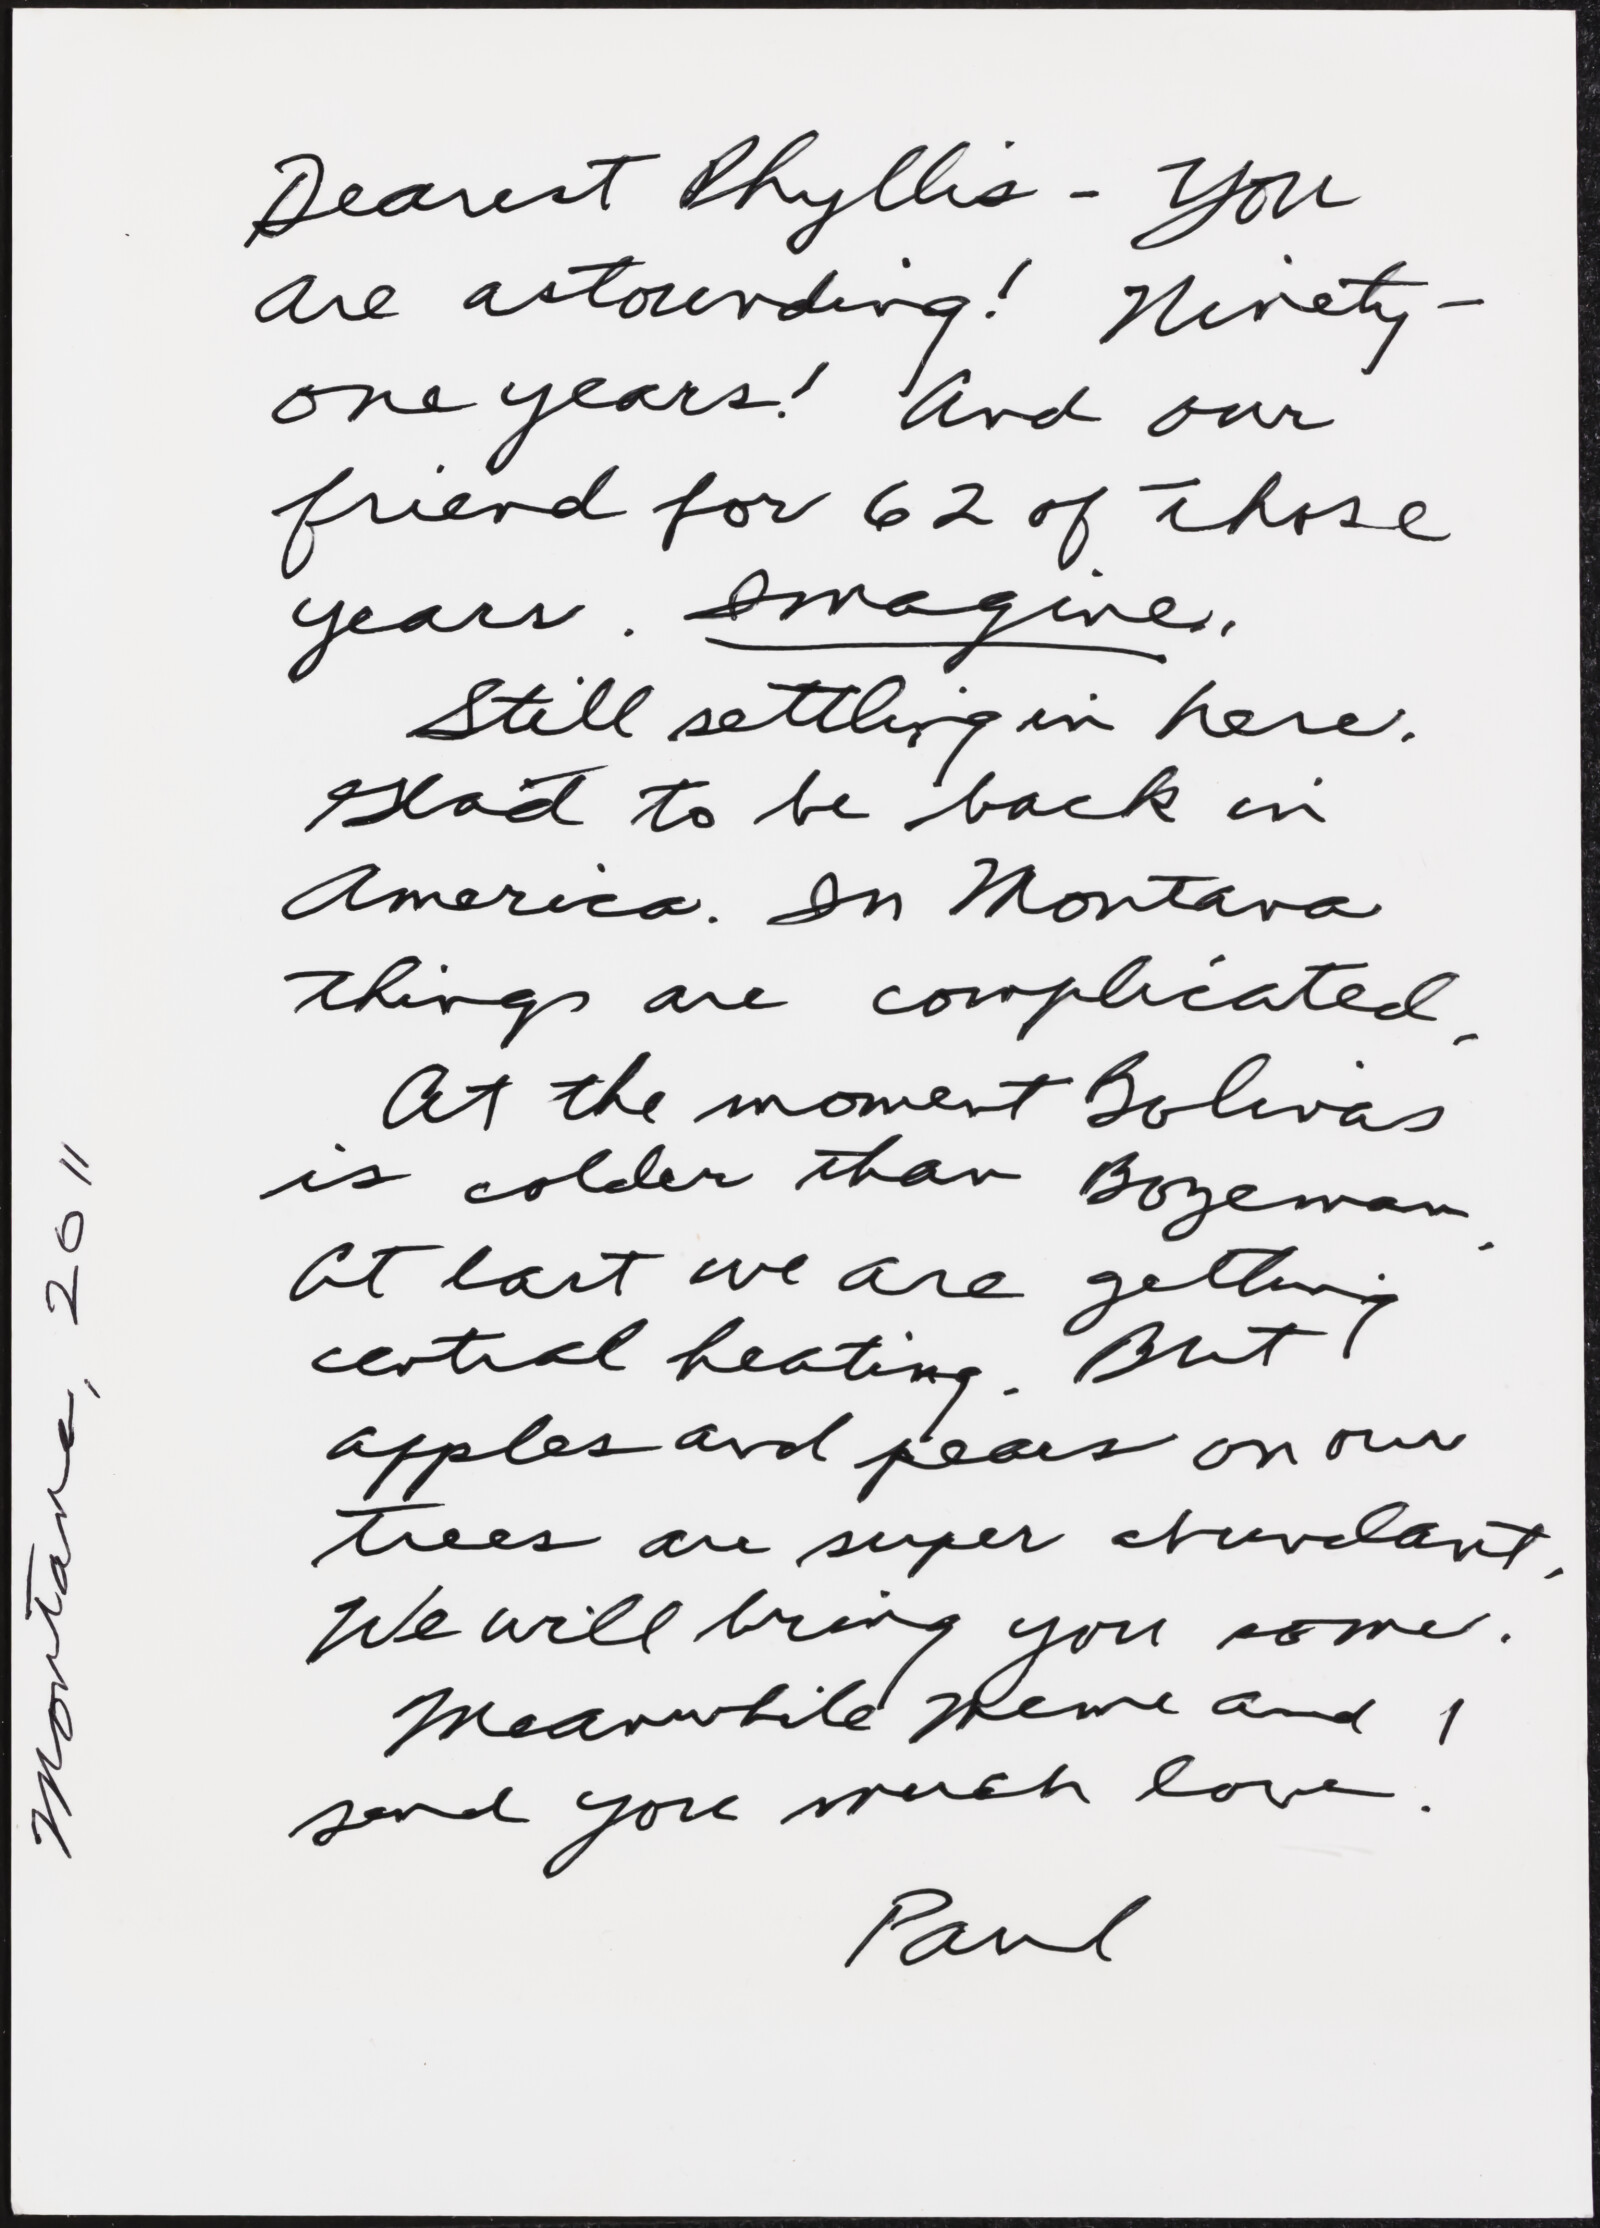 Dearest Phyllis - You
are astounding! Ninety-
one years! And our
friend for 62 of those
years. Imagine.
Still settling in here.
Glad to be back in
America. In Montana
things are complicated.
At the moment Bolinas
is colder than Bozeman.
At last we are getting
central heating. But
apples and pears on our
trees are super abundant.
We will bring you some.
Meanwhile Meme and I
send you much love.
Paul
Montana, 2011